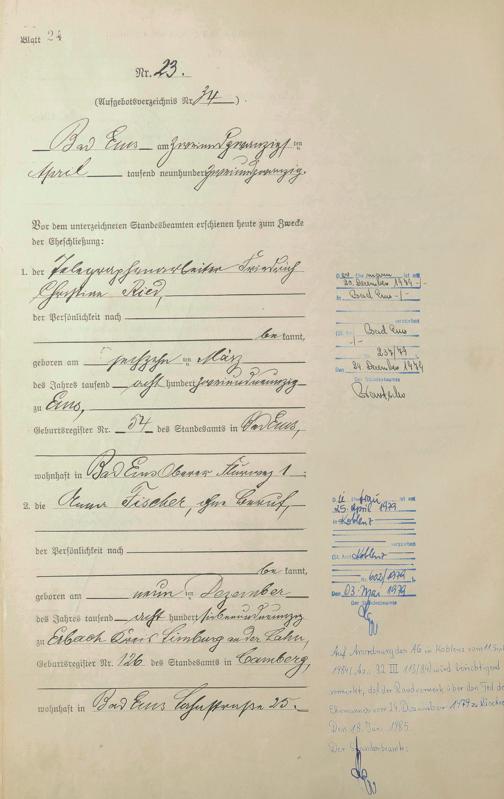 Blatt 24
Nr. 23.
(Aufgebotsverzeichnis Nr. 34)
Bad Ems am zweiundzwanzigsten
April tausend neunhundertzweiundzwanzig.
Vor dem unterzeichneten Standesbeamten erschienen heute zum Zwecke
der Eheschließung:
1. der Telegraphenarbeiter Friedrich
Christian Ried,
der Persönlichkeit nach
be kannt,
geboren am sechzehnten März
des Jahres tausend acht hundert zweiundneunzig
zu Ems,
Geburtsregister Nr. 54 des Standesamts in Bad Ems,
wohnhaft in Bad Ems Oberer 1.
2. die Anna Fischer, ohne Beruf,
der Persönlichkeit nach
be kannt,
geboren am neunten Dezember
des Jahres tausend acht hundert siebenundneunzig
zu Erbach Kreis Limburg an der Lahn,
Geburtsregister Nr. 126 des Standesamts in Camberg,
wohnhaft in Bad Ems Lahnstraße 25.
D er Ehemann ist am
20. Dezember 1979
in Bad Ems
verstorben
Bad Ems
Nr. 237/79
Den 24. Dezember 1979
Der Standesbeamte
D ie Ehefrau ist am
25. April 1979
in Koblenz
verstorben
Koblenz
Nr. 602/1979
Den 03. Mai 1979
Der Standesbeamte
Auf Anordnung des AG in Koblenz vom 11. Juni
1984 (Az. 32 III 113/84) wird berichtigend
vermerkt, daß der Randvermerk über den Tod des
Ehemannes vom 24. Dezember 1979 zu löschen
Den 18. Juni 1985
Der Standesbeamte: